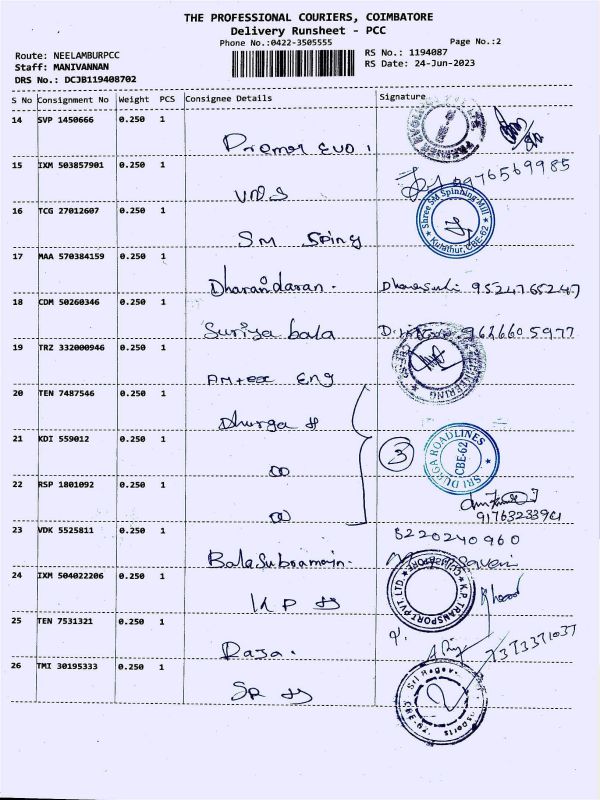 THE PROFESSIONAL COURIERS, COIMBATORE
Delivery Runsheet - PCC
Phone No.:0422-3505555
Page No.:2
Route: NEELAMBURPCC
RS No.: 1194087
Staff: MANIVANNAN
RS Date: 24-Jun-2023
DRS No.: DCJB119408702
S No Consignment No Weight PCS Consignee Details Signature
14 SVP 1450666 0.250 1
15 IXM 503857901 0.250 1
9976569985
VMS
16 TCG 27012607 0.250 1
Shree SM Spinning Mill
Kulathur, CBE-62
SM Sping
17 MAA 570384159 0.250 1
Dharandaran. 9524765247
18 CDM 50260346 0.250 1
Suriya bala 9626605977
19 TRZ 332000946 0.250 1
Amtex Eng
20 TEN 7487546 0.250 1
Dhurga
21 KDI 559012 0.250 1
3
SRI DURGA ROADLINES
CBE-62
22 RSP 1801092 0.250 1
23 VDK 5525811 0.250 1
8220240960
24 IXM 504022206 0.250 1
K.P. TRANSPORT PVT. LTD.
COIMBATORE
K P
25 TEN 7531321 0.250 1
Raja.
7373371037
26 TMI 30195333 0.250 1
SR